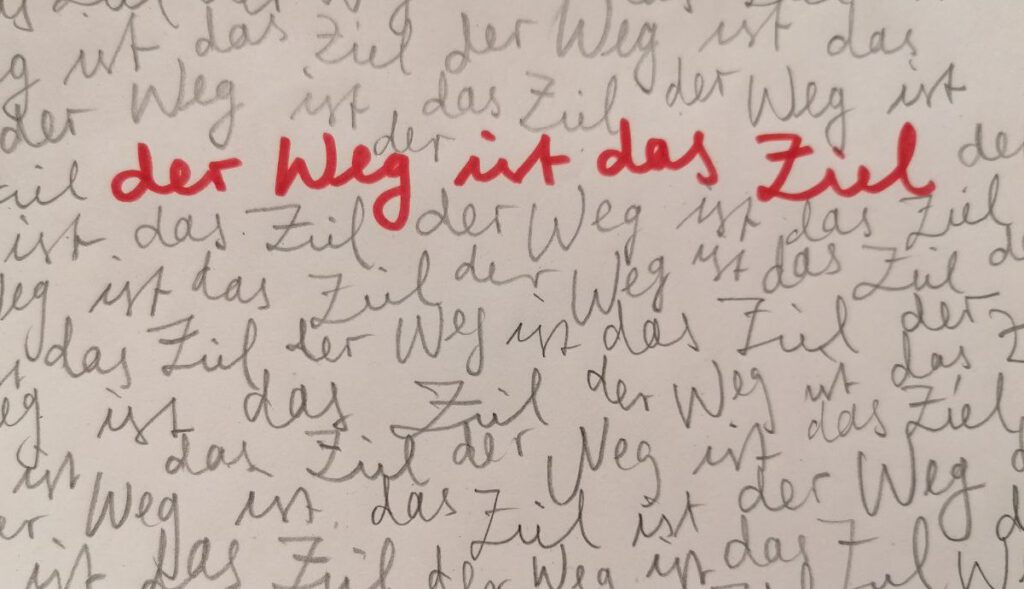 ist das Ziel der Weg ist das
der Weg ist das Ziel der Weg ist
der
Ziel der Weg ist das Ziel
ist das Ziel der Weg ist das Ziel
Weg ist das Ziel der Weg ist das Ziel
das Ziel der Weg ist das Ziel der
ist das Ziel der Weg ist das
ist das Ziel der Weg ist das Ziel
Weg ist das Ziel ist der Weg
ist das Ziel der Weg ist das Ziel